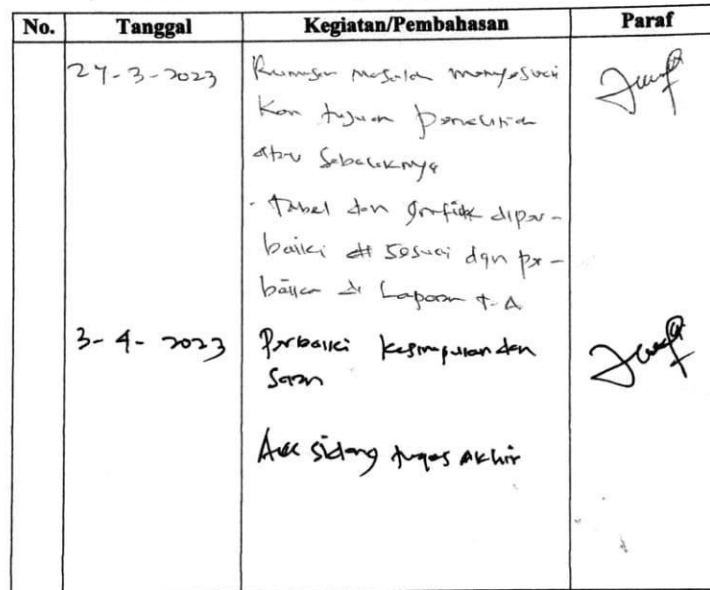 No. Tanggal Kegiatan/Pembahasan Paraf
27-3-2023 Rumusan masalah menyesuai
kan tujuan penelitian
atau sebaliknya
- Tabel dan grafik diper-
baiki sesuai dgn per-
baikan di Laporan T.A
3-4-2023 Perbaiki kesimpulan dan
Saran
Acc sidang tugas Akhir